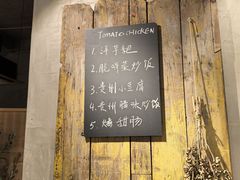 TOMATO CHICKEN
1. 洋芋粑
2. 脆哨蛋炒饭
3. 贵州小豆腐
4. 贵州腊味炒饭
5. 烤甜肠